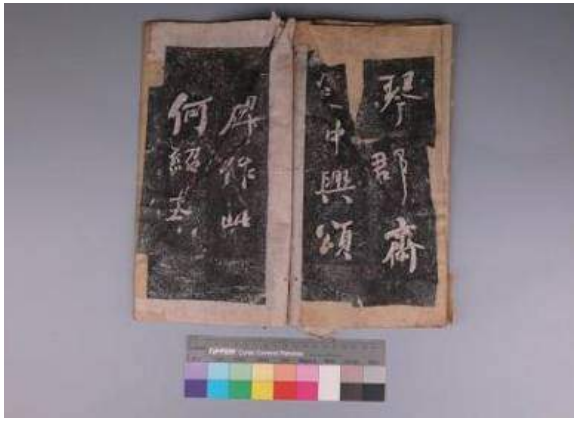 琴郡齋
中興頌
碑作此
何紹基
TIFFEN Color Control Patches